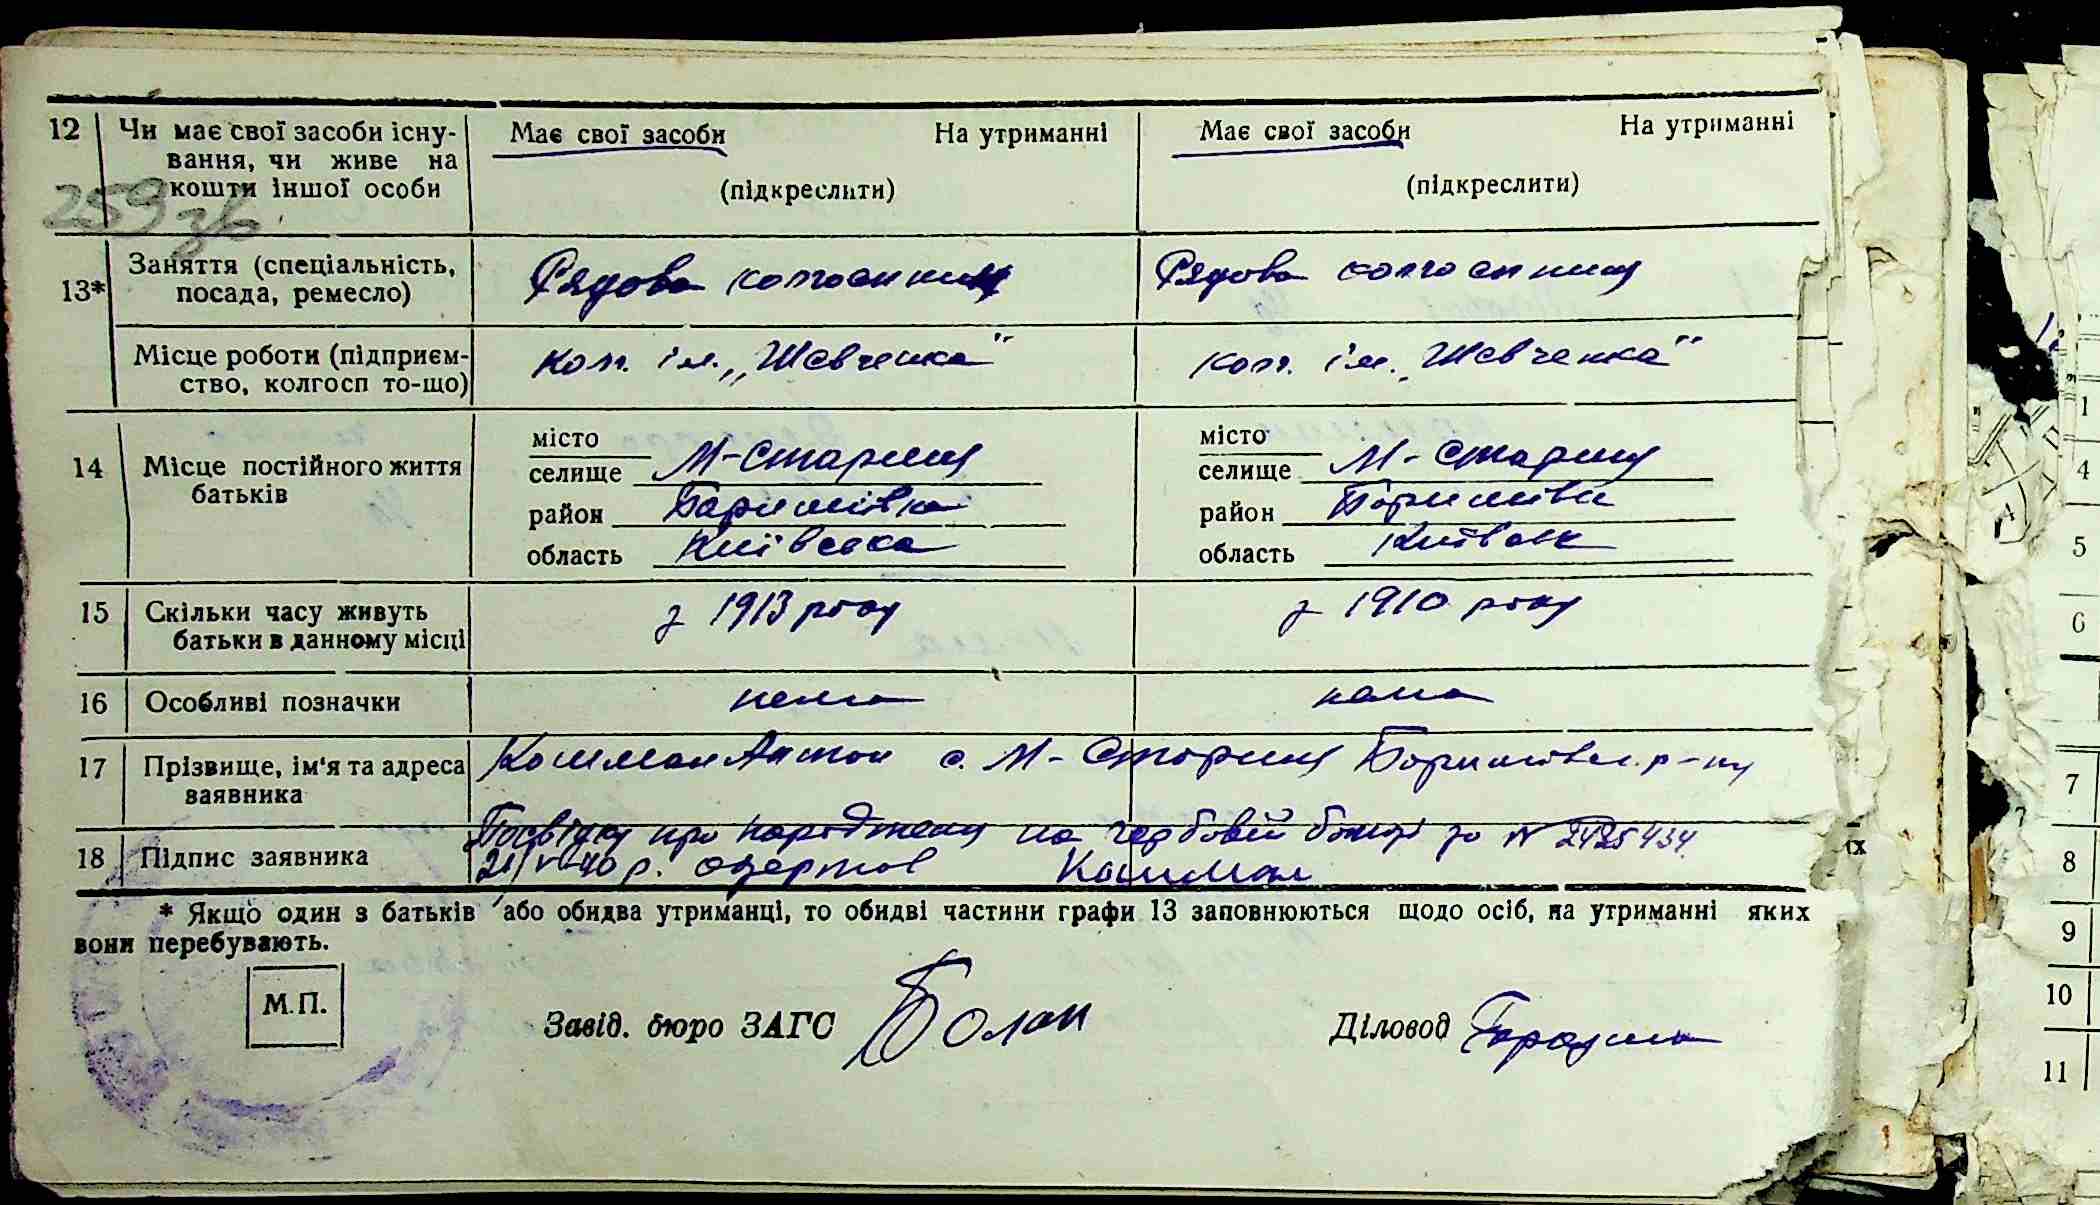 12 Чи має свої засоби існу- Має свої засоби На утриманні Має свої засоби На утриманні
вання, чи живе на
кошти іншої особи (підкреслити) (підкреслити)
259 зв
13* Заняття (спеціальність, Рядова колгоспниця Рядова колгоспниця
посада, ремесло)
Місце роботи (підприєм- колг. ім. „Шевченка" колг. ім. „Шевченка"
ство, колгосп то-що)
14 Місце постійного життя місто місто
батьків селище М-Стариця селище М-Стариця
район Баришівка район Баришівськ
область Київська область Київськ
15 Скільки часу живуть з 1913 року з 1910 року
батьки в данному місці
16 Особливі позначки нема нема
17 Прізвище, ім'я та адреса Кошман Антон с. М-Стариця Баришівськ. р-ну
заявника
Посвідку про народження на гербовій бомазі за № 2425434
18 Підпис заявника 21/VI-40 р. одержав Кошман
* Якщо один з батьків або обидва утриманці, то обидві частини графи 13 заповнюються щодо осіб, на утриманні яких
вони перебувають.
М.П. Завід. бюро ЗАГС Діловод
1
4
5
6
7
8
9
10
11